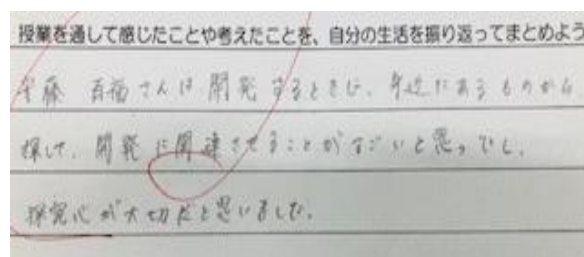 授業を通して感じたことや考えたことを、自分の生活を振り返ってまとめよう
安藤 百福さんは開発するときに、身近にあるものから
探して、開発に関連させることがすごいと思った。
探究心が大切だと思いました。